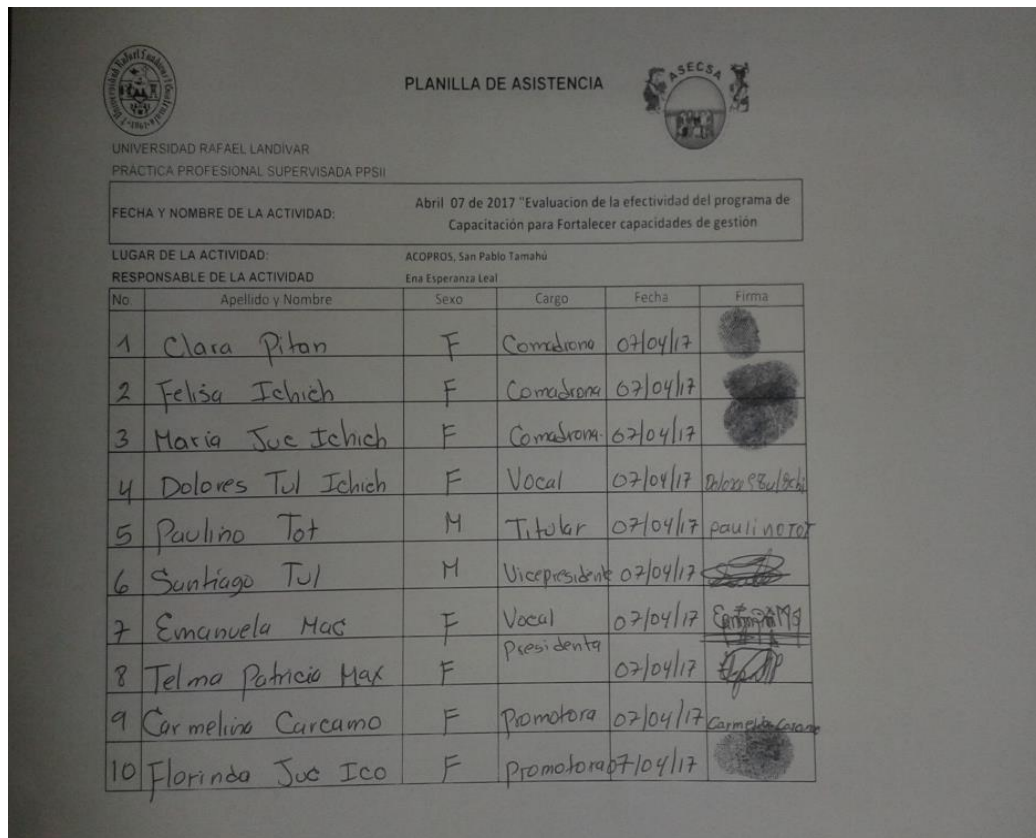 PLANILLA DE ASISTENCIA
ASECSA
UNIVERSIDAD RAFAEL LANDÍVAR
PRÁCTICA PROFESIONAL SUPERVISADA PPSII
FECHA Y NOMBRE DE LA ACTIVIDAD: Abril 07 de 2017 "Evaluacion de la efectividad del programa de
Capacitación para Fortalecer capacidades de gestión
LUGAR DE LA ACTIVIDAD: ACOPROS, San Pablo Tamahú
RESPONSABLE DE LA ACTIVIDAD Ena Esperanza Leal
No. Apellido y Nombre Sexo Cargo Fecha Firma
1 Clara Pitan F Comadrona 07/04/17
2 Felisa Ichich F Comadrona 07/04/17
3 Maria Juc Ichich F Comadrona. 07/04/17
4 Dolores Tul Ichich F Vocal 07/04/17
5 Paulino Tot M Titular 07/04/17 paulino Tot
6 Santiago Tul M Vicepresidente 07/04/17
7 Emanuela Mac F Vocal 07/04/17
8 Telma Patricia Max F Presidenta 07/04/17
9 Carmelina Carcamo F Promotora 07/04/17
10 Florinda Juc Ico F Promotora 07/04/17